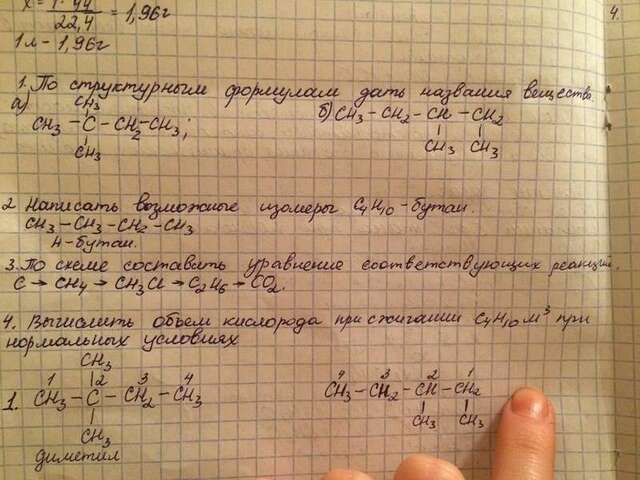 x = 1·44 / 22,4 = 1,96г
1л - 1,96г
4.
1. По структурным формулам дать названия веществ.
а) CH3 - C - CH2 - CH3;
CH3
CH3
б) CH3 - CH2 - CH - CH2
CH3 CH3
2 Написать возможные изомеры C4H10 - бутан.
CH3 - CH3 - CH2 - CH3
Н-бутан.
3. По схеме составить уравнение соответствующих реакций.
C → CH4 → CH3Cl → C2H6 → CO2.
4. Вычислить объем кислорода при сжигании C4H10 м3 при
нормальных условиях
CH3
1 2 3 4
1. CH3 - C - CH2 - CH3
CH3
диметил
4 3 2 1
CH3 - CH2 - CH - CH2
CH3 CH3